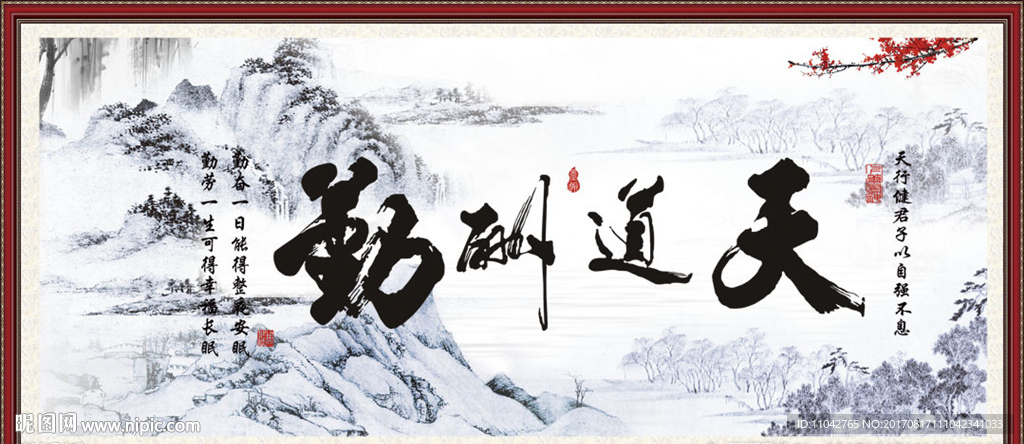 天道酬勤
天行健君子以自强不息
勤奋一日能得整夜安眠
勤劳一生可得幸福长眠
昵图网 www.nipic.com
ID:11042765 NO:20170817111042341033